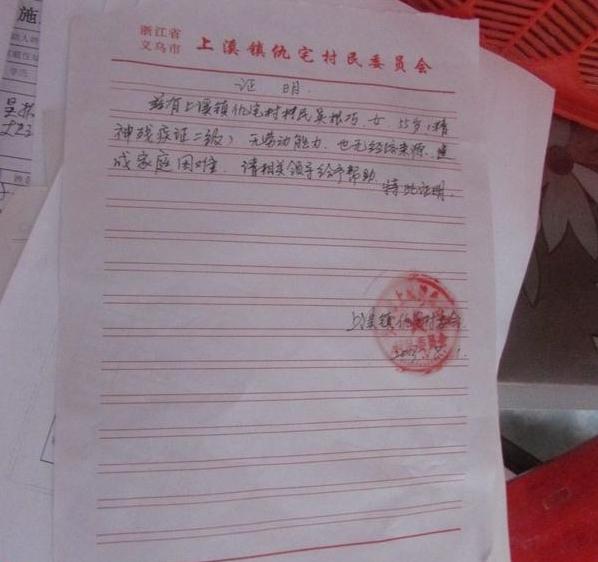 浙江省
义乌市 上溪镇仇宅村民委员会
证明
兹有上溪镇仇宅村村民吴根巧,女 55岁(精
神残疾证二级)无劳动能力,也无经济来源,造
成家庭困难,请相关领导给予帮助
特此证明.
上溪镇仇宅村委会
施